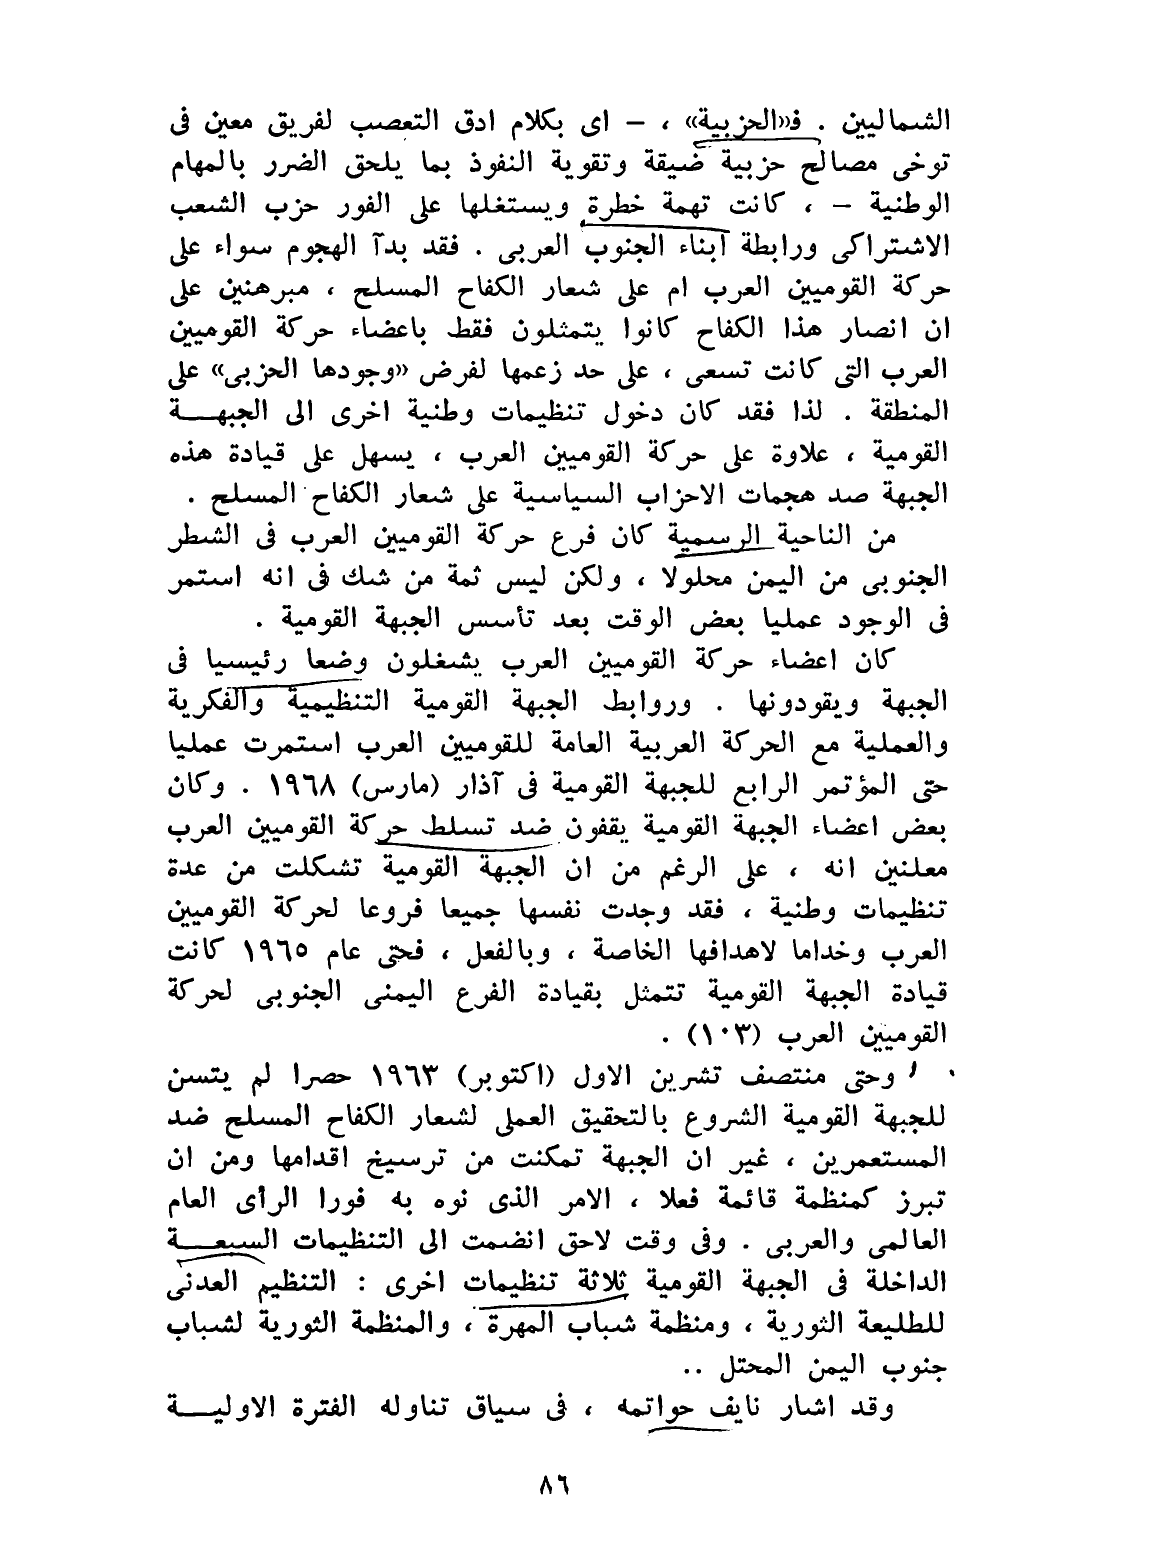 الشماليين . ف«الحزبية» ، – اى بكلام ادق التعصب لفريق معين فى
توخى مصالح حزبية ضيقة وتقوية النفوذ بما يلحق الضرر بالمهام
الوطنية – ، كانت تهمة خطرة ويستغلها على الفور حزب الشعب
الاشتراكى ورابطة ابناء الجنوب العربى . فقد بدآ الهجوم سواء على
حركة القوميين العرب ام على شعار الكفاح المسلح ، مبرهنين على
ان انصار هذا الكفاح كانوا يتمثلون فقط باعضاء حركة القوميين
العرب التى كانت تسعى ، على حد زعمها لفرض «وجودها الحزبى» على
المنطقة . لذا فقد كان دخول تنظيمات وطنية اخرى الى الجبهـــة
القومية ، علاوة على حركة القوميين العرب ، يسهل على قيادة هذه
الجبهة صد هجمات الاحزاب السياسية على شعار الكفاح المسلح .
من الناحية الرسمية كان فرع حركة القوميين العرب فى الشطر
الجنوبى من اليمن محلولا ، ولكن ليس ثمة من شك فى انه استمر
فى الوجود عمليا بعض الوقت بعد تأسس الجبهة القومية .
كان اعضاء حركة القوميين العرب يشغلون وضعا رئيسيا فى
الجبهة ويقودونها . وروابط الجبهة القومية التنظيمية والفكرية
والعملية مع الحركة العربية العامة للقوميين العرب استمرت عمليا
حتى المؤتمر الرابع للجبهة القومية فى آذار (مارس) ١٩٦٨ . وكان
بعض اعضاء الجبهة القومية يقفون ضد تسلط حركة القوميين العرب
معلنين انه ، على الرغم من ان الجبهة القومية تشكلت من عدة
تنظيمات وطنية ، فقد وجدت نفسها جميعا فروعا لحركة القوميين
العرب وخداما لاهدافها الخاصة ، وبالفعل ، فحتى عام ١٩٦٥ كانت
قيادة الجبهة القومية تتمثل بقيادة الفرع اليمنى الجنوبى لحركة
القوميين العرب (١٠٣) .
وحتى منتصف تشرين الاول (اكتوبر) ١٩٦٣ حصرا لم يتسن
للجبهة القومية الشروع بالتحقيق العملى لشعار الكفاح المسلح ضد
المستعمرين ، غير ان الجبهة تمكنت من ترسيخ اقدامها ومن ان
تبرز كمنظمة قائمة فعلا ، الامر الذى نوه به فورا الرأى العام
العالمى والعربى . وفى وقت لاحق انضمت الى التنظيمات السبعـــة
الداخلة فى الجبهة القومية ثلاثة تنظيمات اخرى : التنظيم العدنى
للطليعة الثورية ، ومنظمة شباب المهرة ، والمنظمة الثورية لشباب
جنوب اليمن المحتل ..
وقد اشار نايف حواتمه ، فى سياق تناوله الفترة الاوليـــة
٨٦